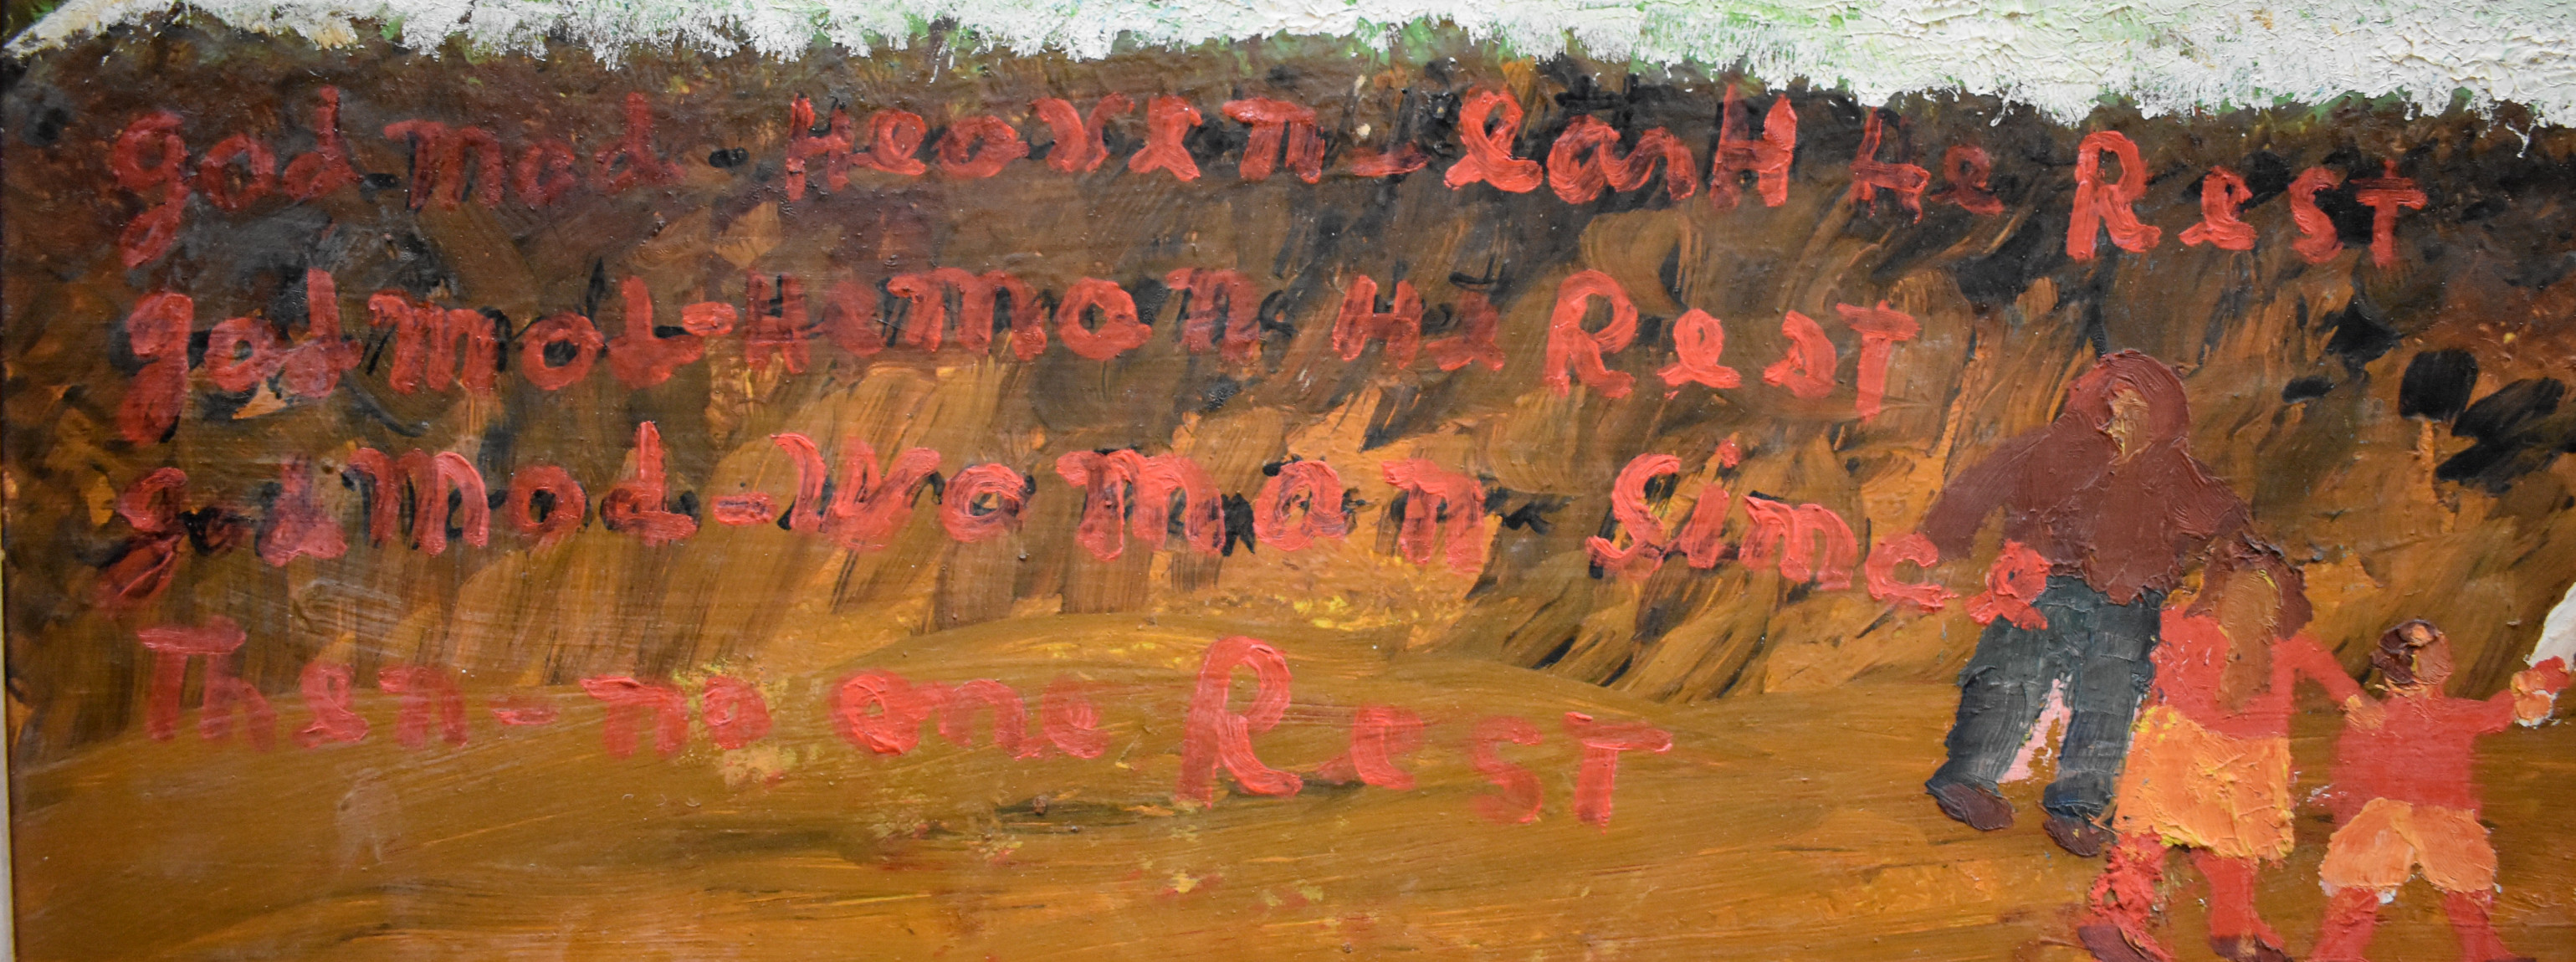 god mad - Heaven - earH He ResT
god mad - Haman He ResT
god mad - Woman Since
Then - no one ResT